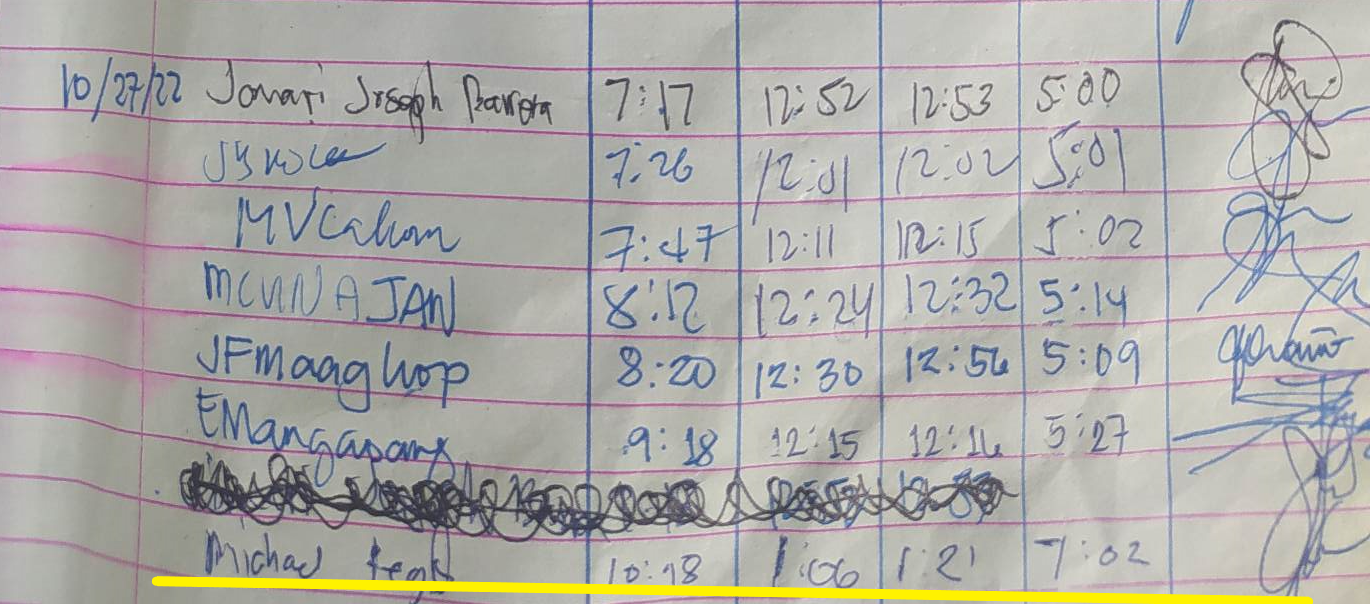 10/27/22 Jomari Joseph 7:17 12:52 12:53 5:00
7:26 12:01 12:02 5:01
MVCahan 7:47 12:11 12:15 5:02
MCUNNAJAN 8:12 12:24 12:32 5:14
JFMaaghop 8:20 12:30 12:56 5:09
EMangapang 9:18 12:15 12:16 5:27
Michael 10:18 1:06 1:21 7:02